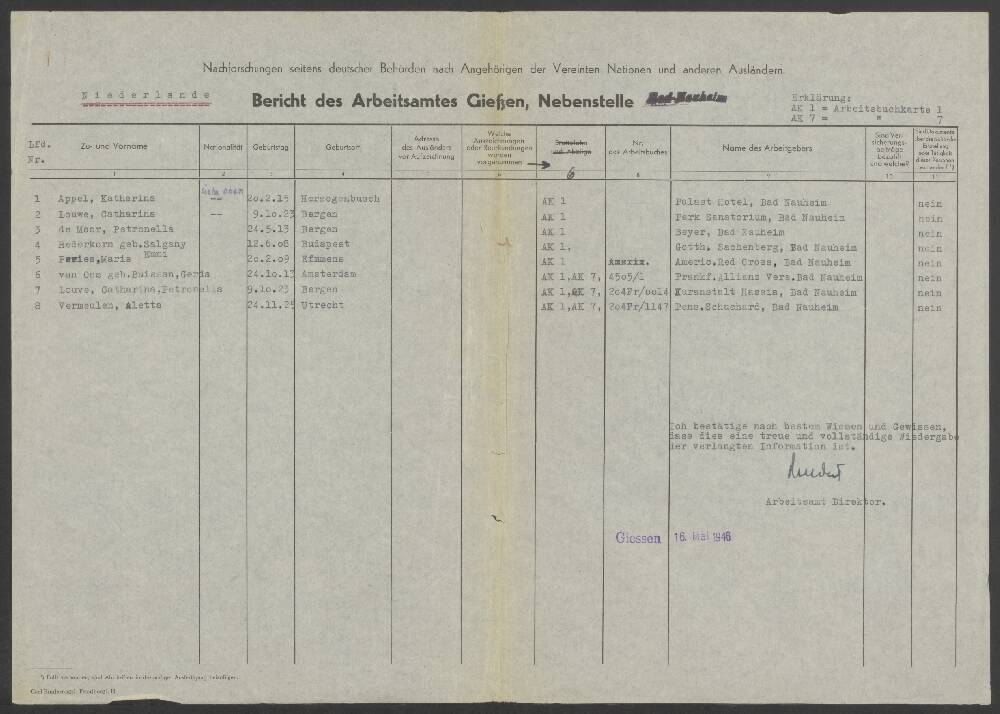 Nachforschungen seitens deutscher Behörden nach Angehörigen der Vereinten Nationen und anderen Ausländern.
Niederlande
Bericht des Arbeitsamtes Gießen, Nebenstelle Bad-Nauheim
Erklärung:
AK 1 = Arbeitsbuchkarte 1
AK 7 = " 7
Lfd. Nr. Zu- und Vorname Nationalität Geburtstag Geburtsort Adresse des Ausländers vor Aufzeichnung Welche Auszeichnungen oder Beurkundungen wurden vorgenommen Nr. des Arbeitsbuches Name des Arbeitgebers Sind Ver-sicherungs-beiträge bezahlt und welche?
1 2 3 4 6 8 9 10
1 Appel, Katharina -- 20.2.15 Herzogenbusch AK 1 Palast Hotel, Bad Nauheim nein
2 Louwe, Catharina -- 9.10.23 Bergen AK 1 Park Sanatorium, Bad Nauheim nein
3 de Moor, Petronella 24.5.13 Bergen AK 1 Beyer, Bad Nauheim nein
4 Hederkorn geb.Salgany 12.6.08 Budapest AK 1, Gotth. Sachenberg, Bad Nauheim nein
5 Maria Emmi 20.2.09 Efmmens AK 1 Amerik. Americ.Red Cross, Bad Nauheim nein
6 van Oos geb.Buissan,Gerda 24.10.13 Amsterdam AK 1,AK 7, 4505/1 Frankf.Allianz Vers.Bad Nauheim nein
7 Louve, Catharina,Petronella 9.10.23 Bergen AK 1,AK 7, 204Fr/0014 Kuranstalt Hassia, Bad Nauheim nein
8 Vermeulen, Aletta 24.11.25 Utrecht AK 1,AK 7, 204Fr/1147 Pens.Schuchard, Bad Nauheim nein
Ich bestätige nach bestem Wissen und Gewissen,
dass dies eine treue und vollständige Wiedergabe
der verlangten Information ist.
Arbeitsamt Direktor.
Giessen 16. Mai 1946